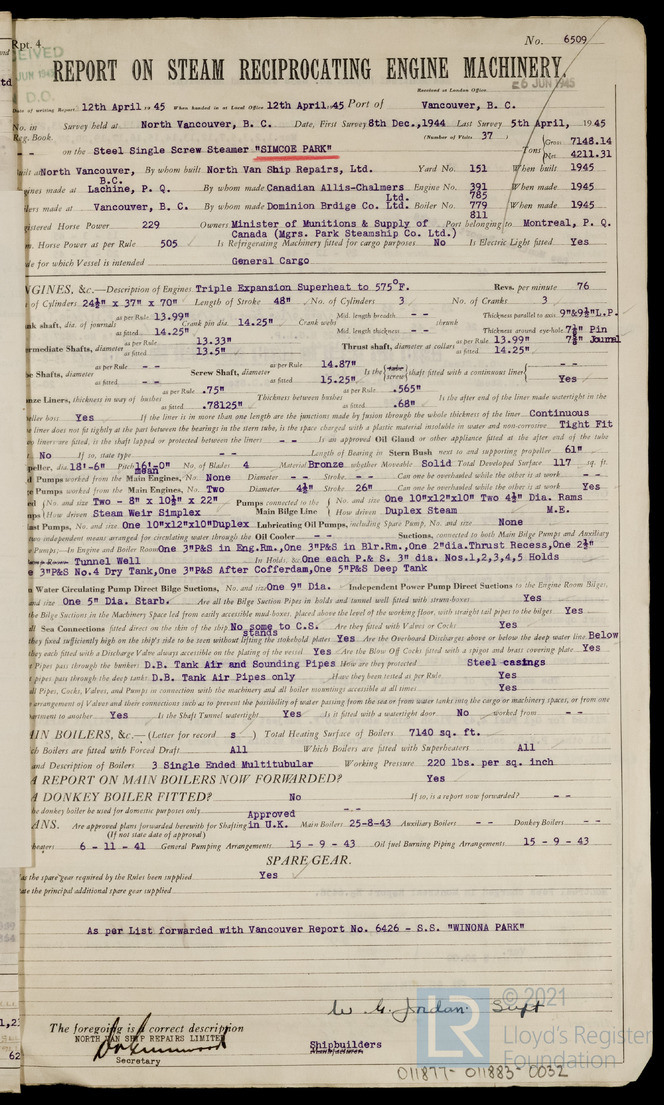 Rpt. 4.
No. 6509
REPORT ON STEAM RECIPROCATING ENGINE MACHINERY.
Received at London Office 26 JUN 1945
Date of writing Report 12th April 19 45 When handed in at Local Office 12th April 19 45 Port of Vancouver, B. C.
No. in Survey held at North Vancouver, B. C. Date, First Survey 8th Dec., 1944 Last Survey 5th April, 1945
Reg. Book. (Number of Visits 37 )
on the Steel Single Screw Steamer "SIMCOE PARK" Tons Gross 7148.14 Net 4211.31
Built at North Vancouver, B.C. By whom built North Van Ship Repairs, Ltd. Yard No. 151 When built 1945
Engines made at Lachine, P. Q. By whom made Canadian Allis-Chalmers Ltd. Engine No. 391 When made 1945
Boilers made at Vancouver, B. C. By whom made Dominion Brdige Co. Ltd. Boiler No. 785 779 811 When made 1945
Registered Horse Power 229 Owners Minister of Munitions & Supply of Canada (Mgrs. Park Steamship Co. Ltd.) Port belonging to Montreal, P. Q.
Nom. Horse Power as per Rule 505 Is Refrigerating Machinery fitted for cargo purposes No Is Electric Light fitted Yes
Trade for which Vessel is intended General Cargo
ENGINES, &c.—Description of Engines Triple Expansion Superheat to 575°F. Revs. per minute 76
of Cylinders 24½" x 37" x 70" Length of Stroke 48" No. of Cylinders 3 No. of Cranks 3
Crank shaft, dia. of journals as per Rule 13.99" as fitted 14.25" Crank pin dia. 14.25" Crank webs Mid. length breadth - - Mid. length thickness - - shrunk Thickness parallel to axis 9"&9½"L.P. Thickness around eye-hole 7½" Pin 7⅞" Journal
Intermediate Shafts, diameter as per Rule 13.33" as fitted 13.5" Thrust shaft, diameter at collars as per Rule 13.99" as fitted 14.25"
Tube Shafts, diameter as per Rule - - as fitted - - Screw Shaft, diameter as per Rule 14.87" as fitted 15.25" Is the screw shaft fitted with a continuous liner - - Yes
Bronze Liners, thickness in way of bushes as per Rule .75" as fitted .78125" Thickness between bushes as per Rule .565" as fitted .68" Is the after end of the liner made watertight in the
propeller boss Yes If the liner is in more than one length are the junctions made by fusion through the whole thickness of the liner Continuous
If the liner does not fit tightly at the part between the bearings in the stern tube, is the space charged with a plastic material insoluble in water and non-corrosive Tight Fit
If two liners are fitted, is the shaft lapped or protected between the liners - - Is an approved Oil Gland or other appliance fitted at the after end of the tube
No If so, state type - - Length of Bearing in Stern Bush next to and supporting propeller 61"
Propeller, dia. 18'-6" Pitch 16'-0" mean No. of Blades 4 Material Bronze whether Moveable Solid Total Developed Surface 117 sq. ft.
Feed Pumps worked from the Main Engines, No. None Diameter - - Stroke - - Can one be overhauled while the other is at work - -
Bilge Pumps worked from the Main Engines, No. Two Diameter 4½" Stroke 26" Can one be overhauled while the other is at work Yes
Feed Pumps No. and size Two - 8" x 10½" x 22" How driven Steam Weir Simplex Pumps connected to the Main Bilge Line No. and size One 10"x12"x10" Two 4½" Dia. Rams How driven Duplex Steam M.E.
Ballast Pumps, No. and size One 10"x12"x10"Duplex Lubricating Oil Pumps, including Spare Pump, No. and size None
Are two independent means arranged for circulating water through the Oil Cooler - - Suctions, connected to both Main Bilge Pumps and Auxiliary
Bilge Pumps:—In Engine and Boiler Room One 3"P&S in Eng.Rm.,One 3"P&S in Blr.Rm., One 2"dia.Thrust Recess,One 2½"
Tunnel Well In Holds, &c One each P.& S. 3" dia. Nos.1,2,3,4,5 Holds
3"P&S No.4 Dry Tank,One 3"P&S After Cofferdam,One 5"P&S Deep Tank
Main Water Circulating Pump Direct Bilge Suctions, No. and size One 9" Dia. Independent Power Pump Direct Suctions to the Engine Room Bilges,
No. and size One 5" Dia. Starb. Are all the Bilge Suction Pipes in holds and tunnel well fitted with strum-boxes Yes
Are the Bilge Suctions in the Machinery Space led from easily accessible mud-boxes, placed above the level of the working floor, with straight tail pipes to the bilges Yes
Are all Sea Connections fitted direct on the skin of the ship No some to C.S. stands Are they fitted with Valves or Cocks Yes
Are they fixed sufficiently high on the ship's side to be seen without lifting the stokehold plates Yes Are the Overboard Discharges above or below the deep water line Below
Are they each fitted with a Discharge Valve always accessible on the plating of the vessel Yes Are the Blow Off Cocks fitted with a spigot and brass covering plate Yes
What Pipes pass through the bunkers D.B. Tank Air and Sounding Pipes How are they protected Steel casings
What pipes pass through the deep tanks D.B. Tank Air Pipes only Have they been tested as per Rule Yes
Are all Pipes, Cocks, Valves, and Pumps in connection with the machinery and all boiler mountings accessible at all times Yes
Is the arrangement of Valves and their connections such as to prevent the possibility of water passing from the sea or from water tanks into the cargo or machinery spaces, or from one
compartment to another Yes Is the Shaft Tunnel watertight Yes Is it fitted with a watertight door No worked from - -
MAIN BOILERS, &c.—(Letter for record s ) Total Heating Surface of Boilers 7140 sq. ft.
Which Boilers are fitted with Forced Draft All Which Boilers are fitted with Superheaters All
No. and Description of Boilers 3 Single Ended Multitubular Working Pressure 220 lbs. per sq. inch
IS A REPORT ON MAIN BOILERS NOW FORWARDED? Yes
IS A DONKEY BOILER FITTED? No If so, is a report now forwarded? - -
Can the donkey boiler be used for domestic purposes only - -
PLANS. Are approved plans forwarded herewith for Shafting Approved in U.K. Main Boilers 25-8-43 Auxiliary Boilers - - Donkey Boilers - -
(If not state date of approval)
Superheaters 6 - 11 - 41 General Pumping Arrangements 15 - 9 - 43 Oil fuel Burning Piping Arrangements 15 - 9 - 43
SPARE GEAR.
Has the spare gear required by the Rules been supplied Yes
State the principal additional spare gear supplied
As per List forwarded with Vancouver Report No. 6426 - S.S. "WINONA PARK"
W. G. Jordan Supt
The foregoing is a correct description
NORTH VAN SHIP REPAIRS LIMITED
Secretary
Shipbuilders
Manufacturer.
LR © 2021
Lloyd's Register
Foundation
011877-011883-0032